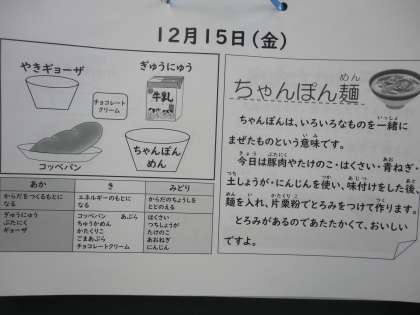 12月15日(金)
やきギョーザ
ぎゅうにゅう
牛乳
チョコレート
クリーム
コッペパン
ちゃんぽん
めん
あか き みどり
からだをつくるもとになる エネルギーのもとになる からだのちょうしをととのえる
ぎゅうにゅう コッペパン あぶら はくさい
ぶたにく ちゅうかめん つちしょうが
ギョーザ かたくりこ たけのこ
ごまあぶら あおねぎ
チョコレートクリーム にんじん
ちゃんぽん麺
めん
ちゃんぽんは、いろいろなものを一緒に
いっしょ
まぜたものという意味です。
いみ
今日は豚肉やたけのこ・はくさい・青ねぎ・
きょう ぶたにく あお
土しょうが・にんじんを使い、味付けをした後、
つち つか あじつ あと
麺を入れ、片栗粉でとろみをつけて作ります。
めん い かたくりこ つく
とろみがあるのであたたかくて、おいしい
ですよ。